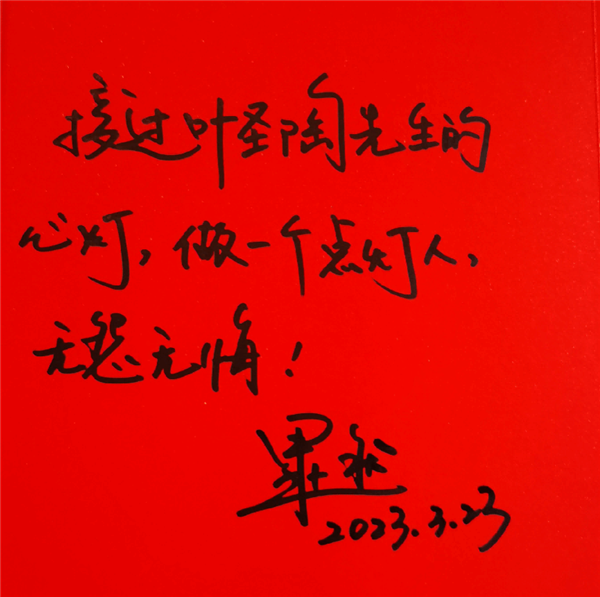 接过叶圣陶先生的
心灯,做一个点灯人,
无怨无悔!
2023.3.23